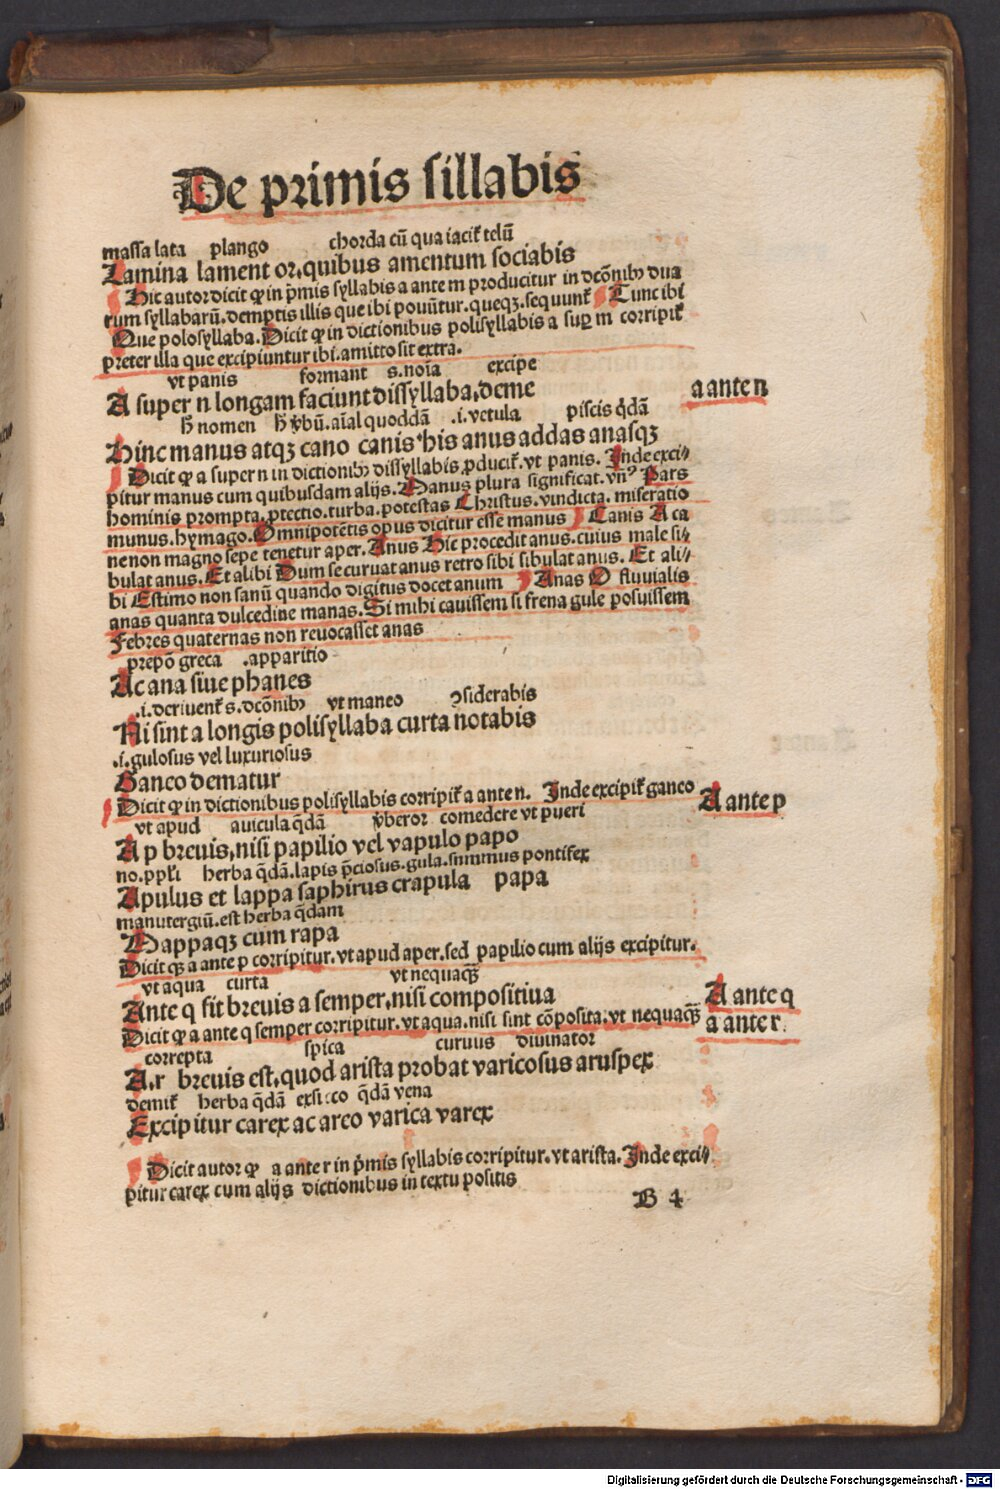 De primis sillabis
massa lata plango chorda cū qua iacit᷑ telū
Lamina lament or, quibus amentum sociabis
Hic autor dicit ꝙ in p̄mis syllabis a ante m producitur in dcōnibꝫ dua
rum syllabarū. demptis illis que ibi ponūtur. queqꝫ. sequunt᷑ Tunc ibi
Que polosyllaba. Dicit ꝙ in dictionibus polisyllabis a suꝑ m corripit᷑
preter illa que excipiuntur ibi. amitto sit extra.
vt panis formant s. noīa excipe
A super n longam faciunt dissyllaba, deme
a ante n
h̄ nomen h̄ v̄bū. aīal quoddā .i. vetula piscis q̄dā
Hinc manus atqꝫ cano canis his anus addas anasqꝫ
Dicit ꝙ a super n in dictionibꝫ dissyllabis ꝓducit᷑. vt panis. Inde exci⸗
pitur manus cum quibusdam alijs. Manus plura significat. vn̄ Pars
hominis prompta. ꝓtectio. turba. potestas Christus. vindicta. miseratio
munus. hymago. Omnipotētis opus dicitur esse manus Canis A ca
nenon magno sepe tenetur aper. Anus Hic procedit anus. cuius male si⸗
bulat anus. Et alibi Dum se curuat anus retro sibi sibulat anus. Et ali⸗
bi Estimo non sanū quando digitus docet anum Anas O fluuialis
anas quanta dulcedine manas. Si mihi cauissem si frena gule posuissem
Febres quaternas non reuocasset anas
prepō greca .apparitio
Ac ana siue phanes
.i. deriuent᷑ s. dcōnibꝫ vt maneo ꝯsiderabis
Ni sint a longis polisyllaba curta notabis
.i. gulosus vel luxuriosus
Ganeo dematur
Dicit ꝙ in dictionibus polisyllabis corripit᷑ a ante n. Inde excipit᷑ ganeo
A ante p
vt apud auicula q̄dā v̄beror comedere vt pueri
A p breuis, nisi papilio vel vapulo papo
no. ppli herba q̄dā. lapis p̄ciosus. gula. summus pontifex
Apulus et lappa saphirus crapula papa
manutergiū. est herba q̄dam
Mappaqꝫ cum rapa
Dicit qꝫ a ante p corripitur. vt apud aper. sed papilio cum alijs excipitur.
vt aqua curta vt nequaqꝫ
Ante q fit breuis a semper, nisi compositiua
A ante q
Dicit ꝙ a ante q semper corripitur. vt aqua. nisi sint cōposita: vt nequaqꝫ
a ante r.
correpta spica curuus diuinator
A, r breuis est, quod arista probat varicosus aruspex
demit᷑ herba q̄dā exsicco q̄dā vena
Excipitur carex ac areo varica varex
Dicit autor ꝙ a ante r in p̄mis syllabis corripitur. vt arista. Inde exci⸗
pitur carex cum alijs dictionibus in textu positis
B 4
Digitalisierung gefördert durch die Deutsche Forschungsgemeinschaft - DFG